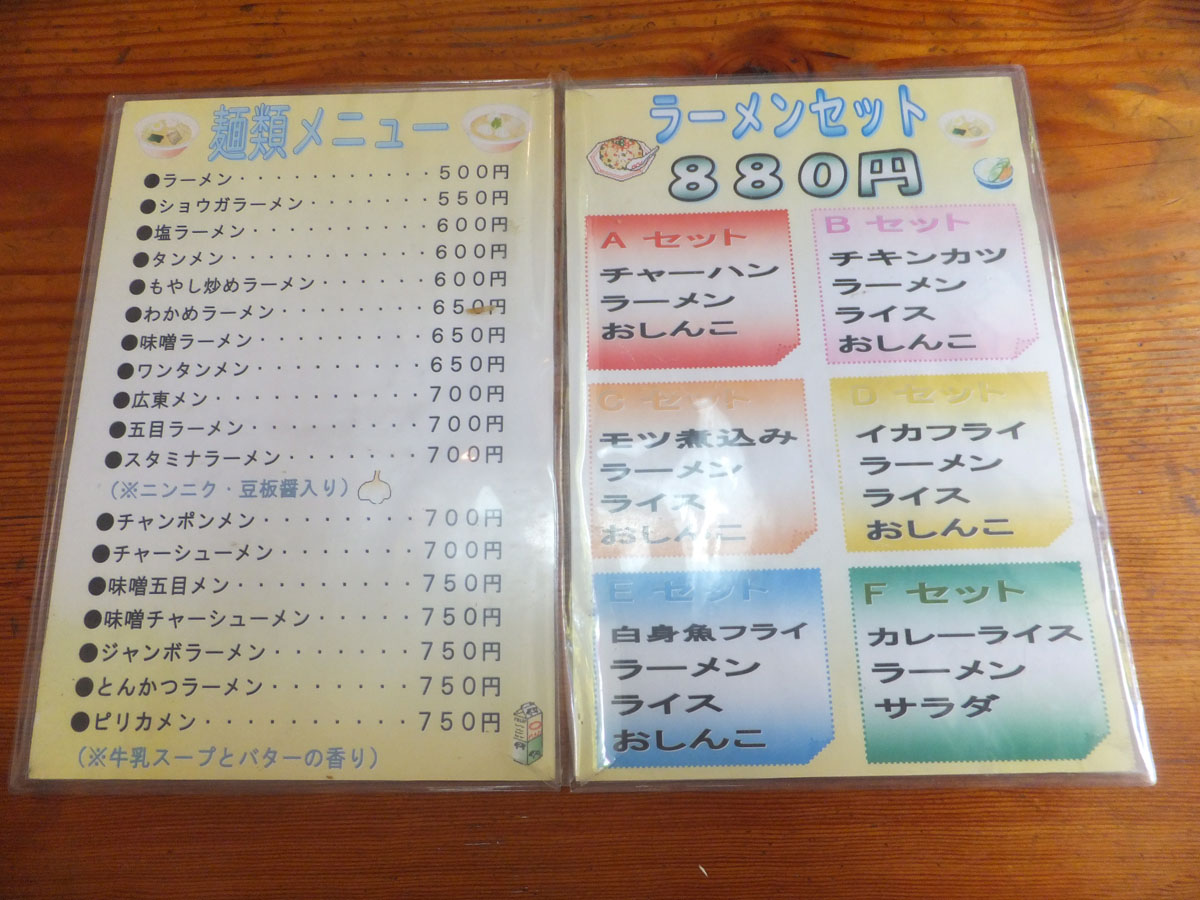 麺類メニュー
●ラーメン・・・・・・・・・・・５００円
●ショウガラーメン・・・・・・・５５０円
●塩ラーメン・・・・・・・・・・６００円
●タンメン・・・・・・・・・・・６００円
●もやし炒めラーメン・・・・・・６００円
●わかめラーメン・・・・・・・・６５０円
●味噌ラーメン・・・・・・・・・６５０円
●ワンタンメン・・・・・・・・・６５０円
●広東メン・・・・・・・・・・・７００円
●五目ラーメン・・・・・・・・・７００円
●スタミナラーメン・・・・・・・７００円
（※ニンニク・豆板醤入り）
●チャンポンメン・・・・・・・・７００円
●チャーシューメン・・・・・・・７００円
●味噌五目メン・・・・・・・・・７５０円
●味噌チャーシューメン・・・・・７５０円
●ジャンボラーメン・・・・・・・７５０円
●とんかつラーメン・・・・・・・７５０円
●ピリカメン・・・・・・・・・・７５０円
（※牛乳スープとバターの香り）
ラーメンセット
８８０円
Ａ セット
チャーハン
ラーメン
おしんこ
Ｂ セット
チキンカツ
ラーメン
ライス
おしんこ
Ｃ セット
モツ煮込み
ラーメン
ライス
おしんこ
Ｄ セット
イカフライ
ラーメン
ライス
おしんこ
Ｅ セット
白身魚フライ
ラーメン
ライス
おしんこ
Ｆ セット
カレーライス
ラーメン
サラダ